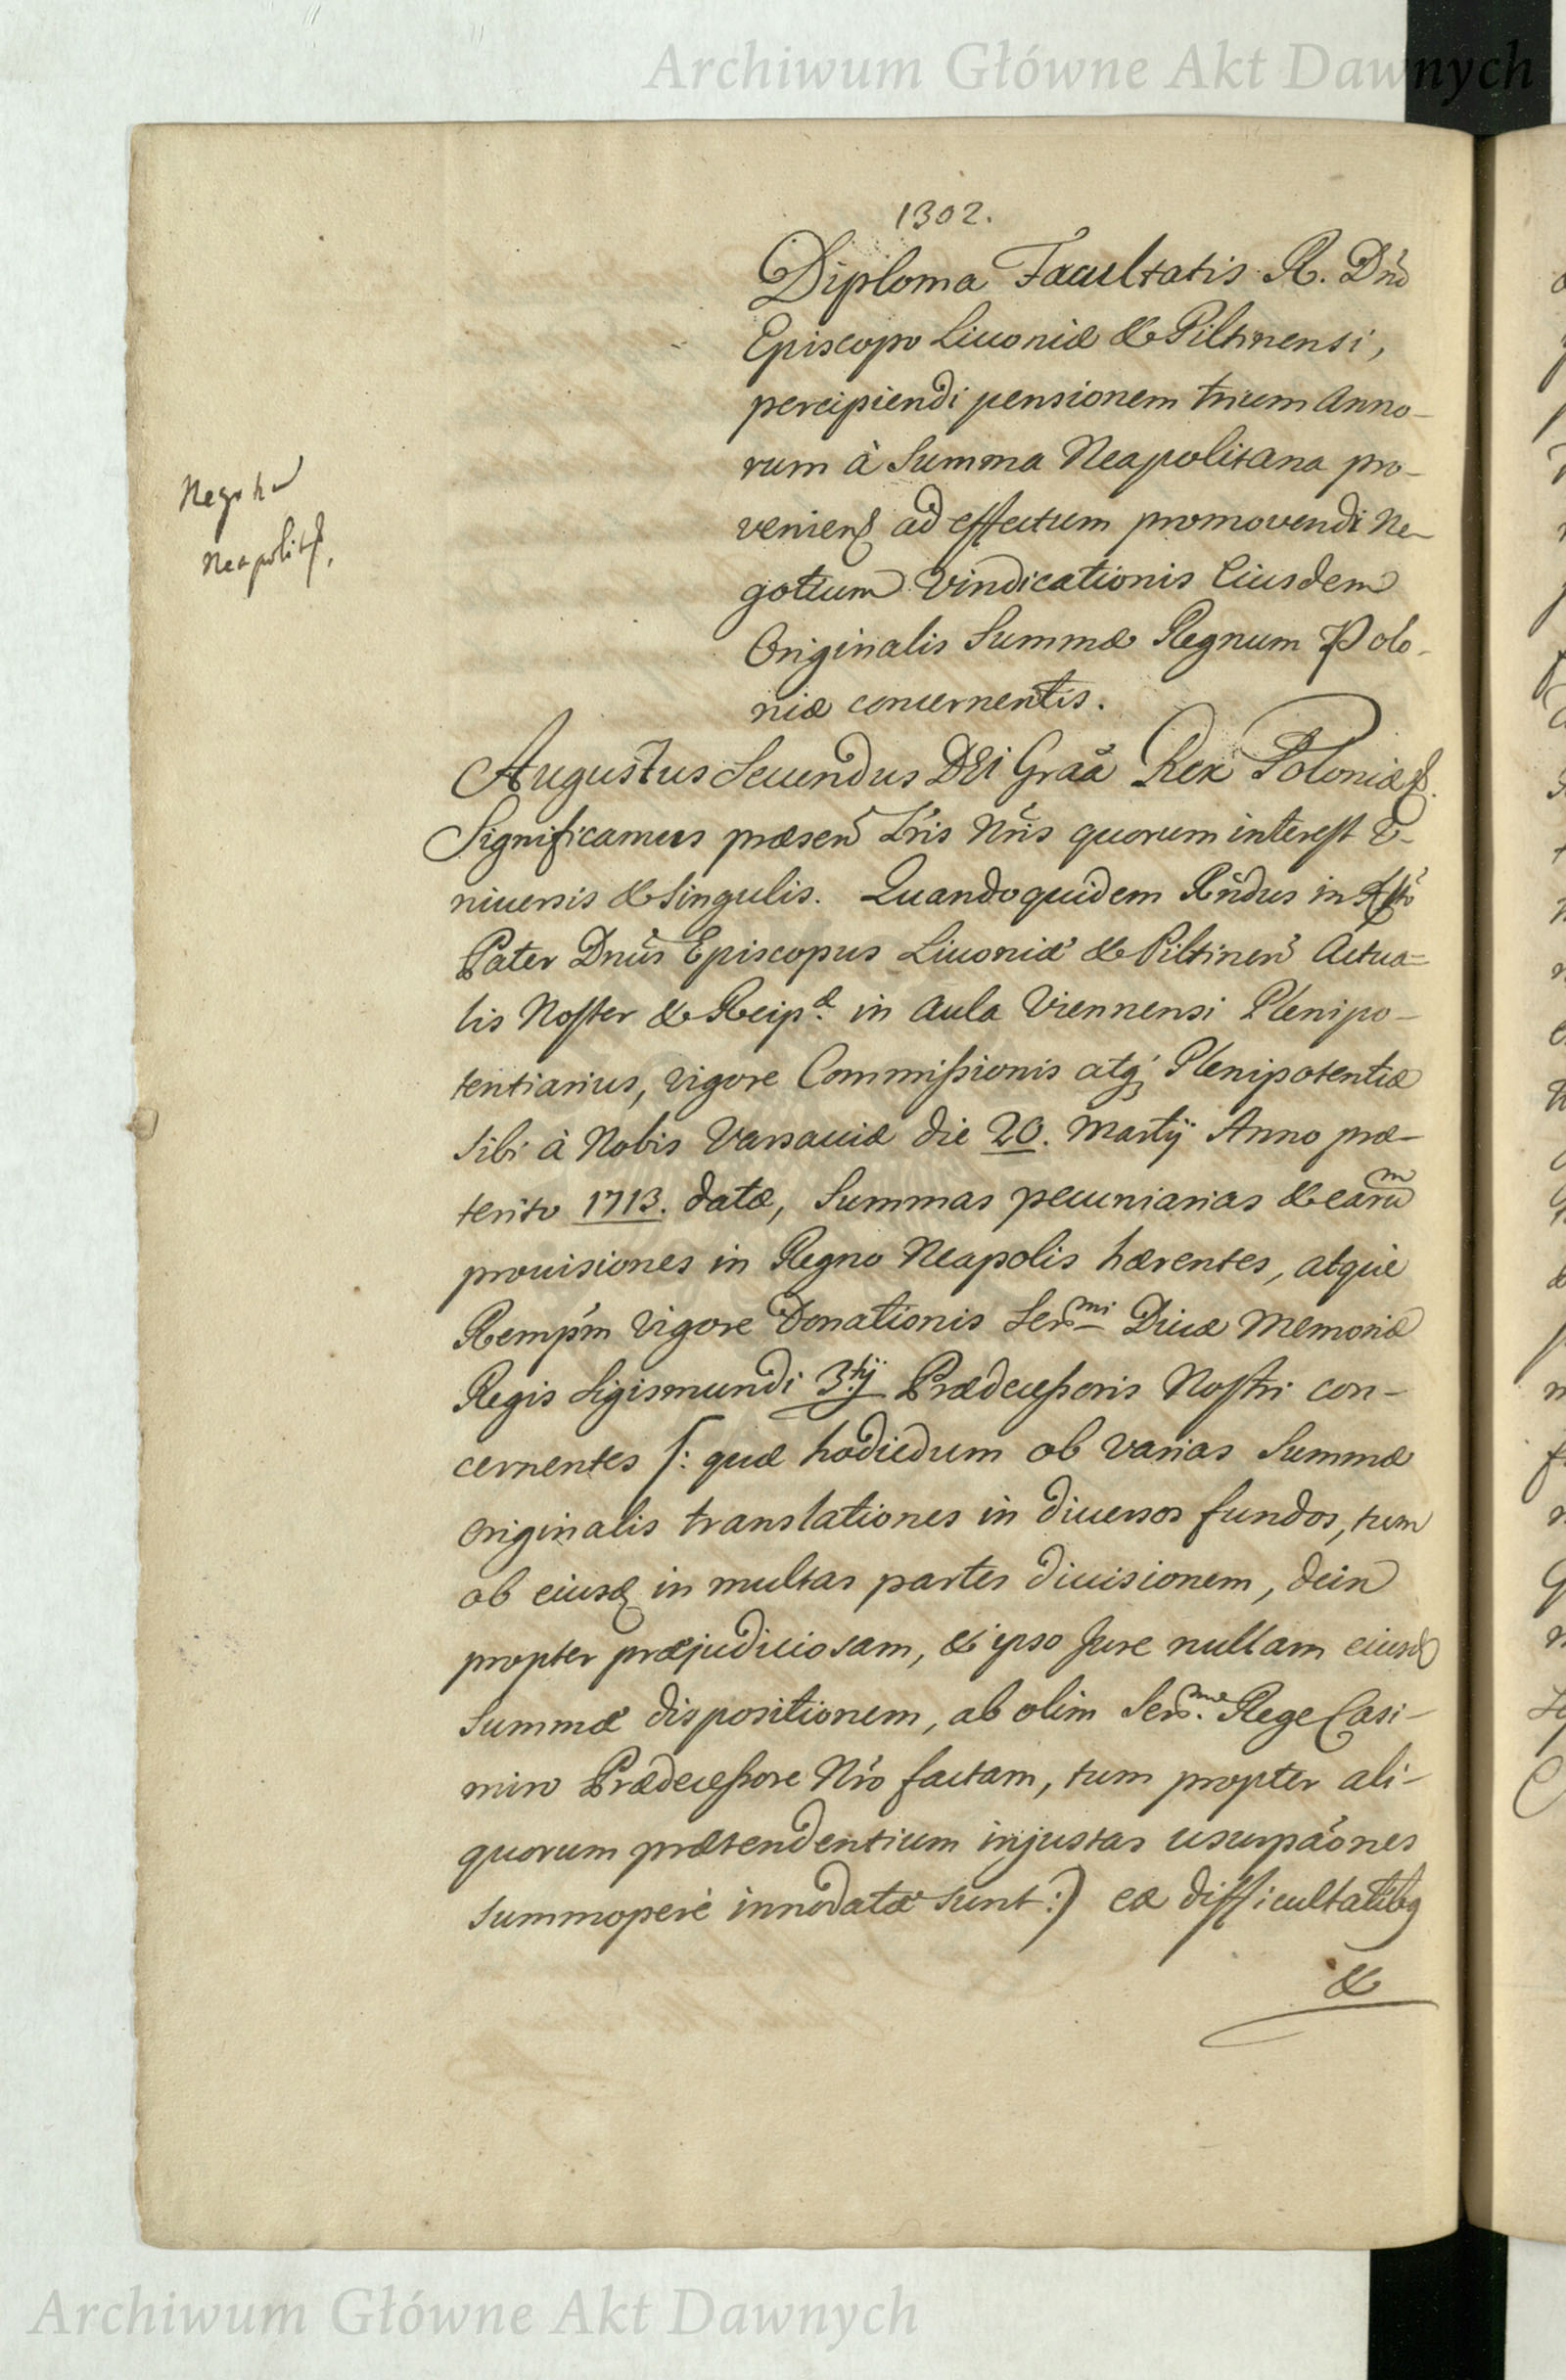 Archiwum Główne Akt Dawnych
1302.
Diploma Facultatis R. Dño
Episcopo Liuoniæ & Piltinensi,
percipiendi pensionem trium Anno-
rum à Summa Neapolitana pro-
venien̄ ad effectum promovendi Ne-
gotium Vindicationis Eiusdem
Originalis Summæ Regnum Polo-
niæ concernentis.
Negotia
Neapolit.
Augustus Secundus DEI Graã Rex Poloniæ
Significamus præsen̄ Lr̃is Nr̃is quorum interest V-
niuersis & Singulis. Quandoquidem Rñdus in Xto
Pater Dnũs Episcopus Liuoniæ & Piltinen̄ Actua=
lis Noster & Reip.æ in Aula Viennensi Plenipo-
tentiarius, vigore Commissionis atq; Plenipotentiæ
Sibi à Nobis Varsauiæ die 20. Martij Anno præ-
terito 1713. datæ, Summas pecuniarias & earũm
prouisiones in Regno Neapolis hærentes, atque
Remp̃m vigore Donationis Ser.mi Diuæ Memoriæ
Regis Sigismundi 3.tij Prædecessoris Nostri con-
cernentes /: quæ hodiedum ob varias Summæ
Originalis translationes in diuersos fundos, tum
ob eiusd in multas partes diuisionem, dein
propter præjudiciosam, & ipso Jure nullam eiusd
Summæ dispositionem, ab olim Ser.mo Rege Casi-
miro Prædecessore Nr̃o factam, tum propter ali-
quorum prætendentium injustas usurpaõnes
Summopere innodatæ sunt :) ex difficultatibq
&
Archiwum Główne Akt Dawnych